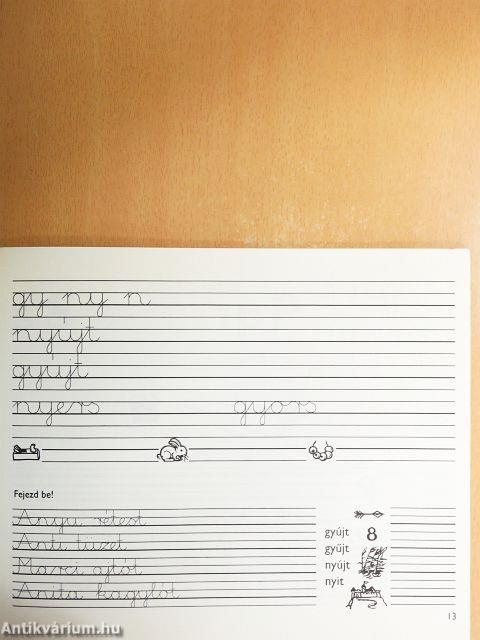 gy ny n
nyújt
gyújt
nyers gyors
Fejezd be!
Anyu rétest
Anti tüzet
Marci ajtót
Anita kagylót
gyújt 8
gyűjt
nyújt
nyit
13
Antikvárium.hu